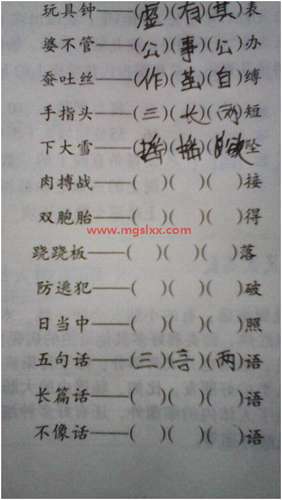 玩具钟——(虚)(有)(其)表
婆不管——(公)(事)(公)办
蚕吐丝——(作)(茧)(自)缚
手指头——(三)(长)(两)短
下大雪——(摇)(摇)(欲)坠
肉搏战——( )( )( )接
双胞胎——( )( )( )得
www.mgslxx.com
跷跷板——( )( )( )落
防逃犯——( )( )( )破
日当中——( )( )( )照
五句话——(三)(言)(两)语
长篇话——( )( )( )语
不像话——( )( )( )语